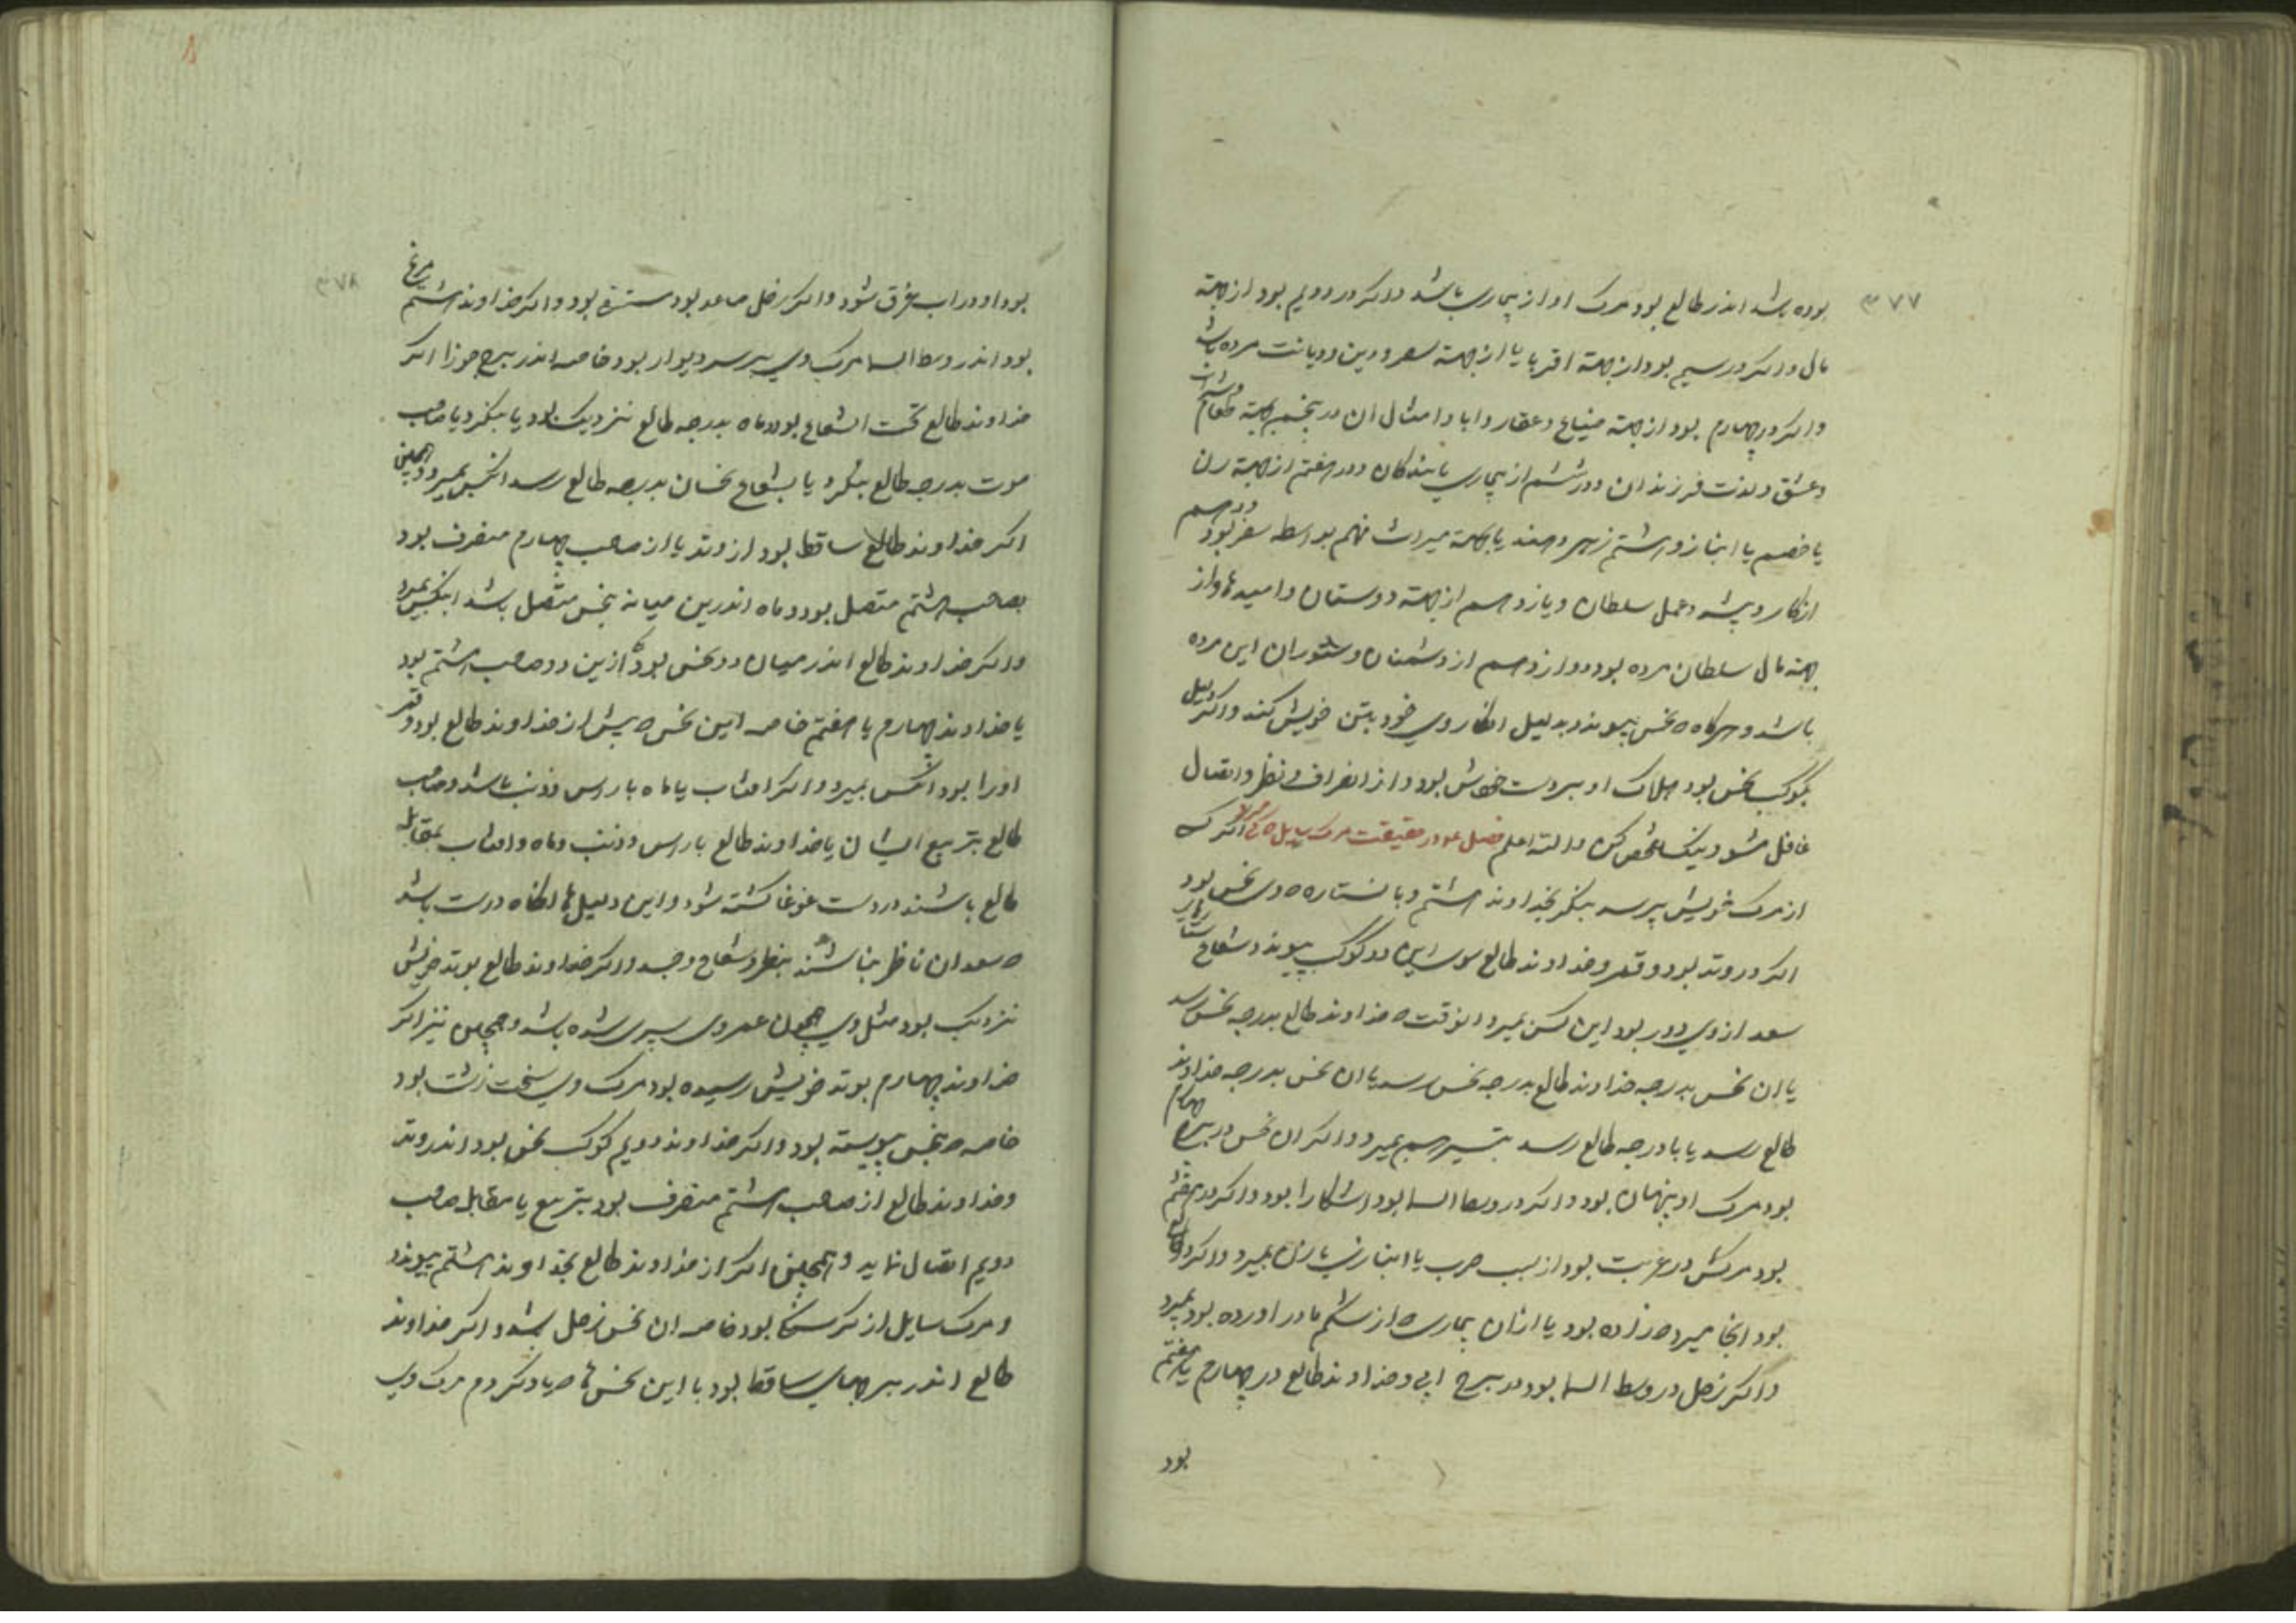 ٣٧٧
بوده باشد اندر طالع بود مرک او از بیماری باشد و اکر در دویم بود از جهة
مال و اکر در سیم بود از جهة اقربا یا از جهة سفر و دین و دیانت مرده باشد
و اکر در چهارم بود از جهة ضیاع و عقار و ابا و امثال ان در پنجم بجهة طعام و شراب
و عشق و لذت فرزندان و در ششم از بیماری یا بندکان و در هفتم از جهة زن
یا خصم یا انباز و هشتم زهر و یا بجهة میراث نهم بواسطه سفر بود و دهم
از کار و پیشه و عمل سلطان و یازدهم از جهة دوستان و امیدها و از
جهة مال سلطان مرده بود و دوازدهم از دشمنان و ستوران این مرده
باشد و هرکاه که نحس پیوندد بدلیل انکار وی خود بتن خویش کند و اکر دلیل
بکوکب نحس بود هلاک او بر دست خویش بود و از انصراف و نظر و اتصال
غافل مشو و نیک تفحص کن والله اعلم فصل در حقیقت مرک سایل اکر کسی
از مرک خویش پرسد بنکر بخداوند هشتم و با ستاره که وی نحس بود
اکر در وتد بود و قمر و خداوند طالع سوی این دو کوکب پیوند و شعاع ستارهای
سعد از وی دور بود این کس بمیرد انوقت که خداوند طالع بدرجه نحس رسد
یا ان نحس بدرجه خداوند طالع بدرجه نحس رسد یا ان نحس بدرجه خداوند
طالع رسد یا با درجه طالع رسد بتسییر هم بمیرد و اکر ان نحس در برج چهارم
بود مرک او پنهان بود و اکر در وسط السما بود اشکارا بود و اکر در هفتم
بود مرکش در غربت بود از سبب حرب یا انباز یا زن بمیرد و اکر در طالع
بود انجا میرد که زاده بود یا از ان بیماری که از شکم مادر اورده بود بمیرد
و اکر زحل در وسط السما بود در برج ابی و خداوند طالع در چهارم یا هفتم
بود
٣٧٨
بود او در اب غرق شود و اکر زحل صاعد بود بود و اکر خداوند هشتم مریخ
بود اندر وسط السما مرک وی بر سر دیوار بود خاصه اندر برج جوزا اکر
خداوند طالع تحت الشعاع بود و ماه بدرجه طالع نزدیک بود یا بنکرد یا صاحب
موت بدرجه طالع بنکرد یا بشعاع نحسان بدرجه طالع رسد انکس بمیرد و همچنین
اکر خداوند طالع ساقط بود از وتد یا از صاحب چهارم منصرف بود
بصاحب هشتم متصل بود و ماه اندرین میانه بنحس متصل باشد اینکس بمیرد
و اکر خداوند طالع اندر میان دو نحس بود و از این دو صاحب هشتم بود
یا خداوند چهارم یا هفتم خاصه این نحس که پیش از خداوند طالع بود و قمر
اورا بود انکس بمیرد و اکر افتاب یا ماه با راس و ذنب باشد و صاحب
طالع بتربیع ایشان یا خداوند طالع با راس و ذنب و ماه و افتاب بمقابله
طالع باشند در دست غوغا کشته شود و این دلیل ها انکاه درست باشد
که سعدان ناظر نباشند بنظر و شعاع و جسد و اکر خداوند طالع بوتد خویش
نزدیک بود مثل وی همچون عمر وی سپری شده باشد و همچنین نیز اکر
خداوند چهارم بوتد خویش رسیده بود مرک وی سخت زشت بود
خاصه که بنحس پیوسته بود و اکر خداوند دویم کوکب نحس بود اندر وتد
و خداوند طالع از صاحب هشتم منصرف بود بتربیع یا مقابله صاحب
دویم اتصال نماید و همچنین اکر از خداوند طالع بخداوند هشتم پیوندد
و مرک سایل از کرسنکی بود خاصه ان نحس زحل باشد و اکر خداوند
طالع اندر برجهای ساقط بود با این نحس ها که یاد کردم مرک وی